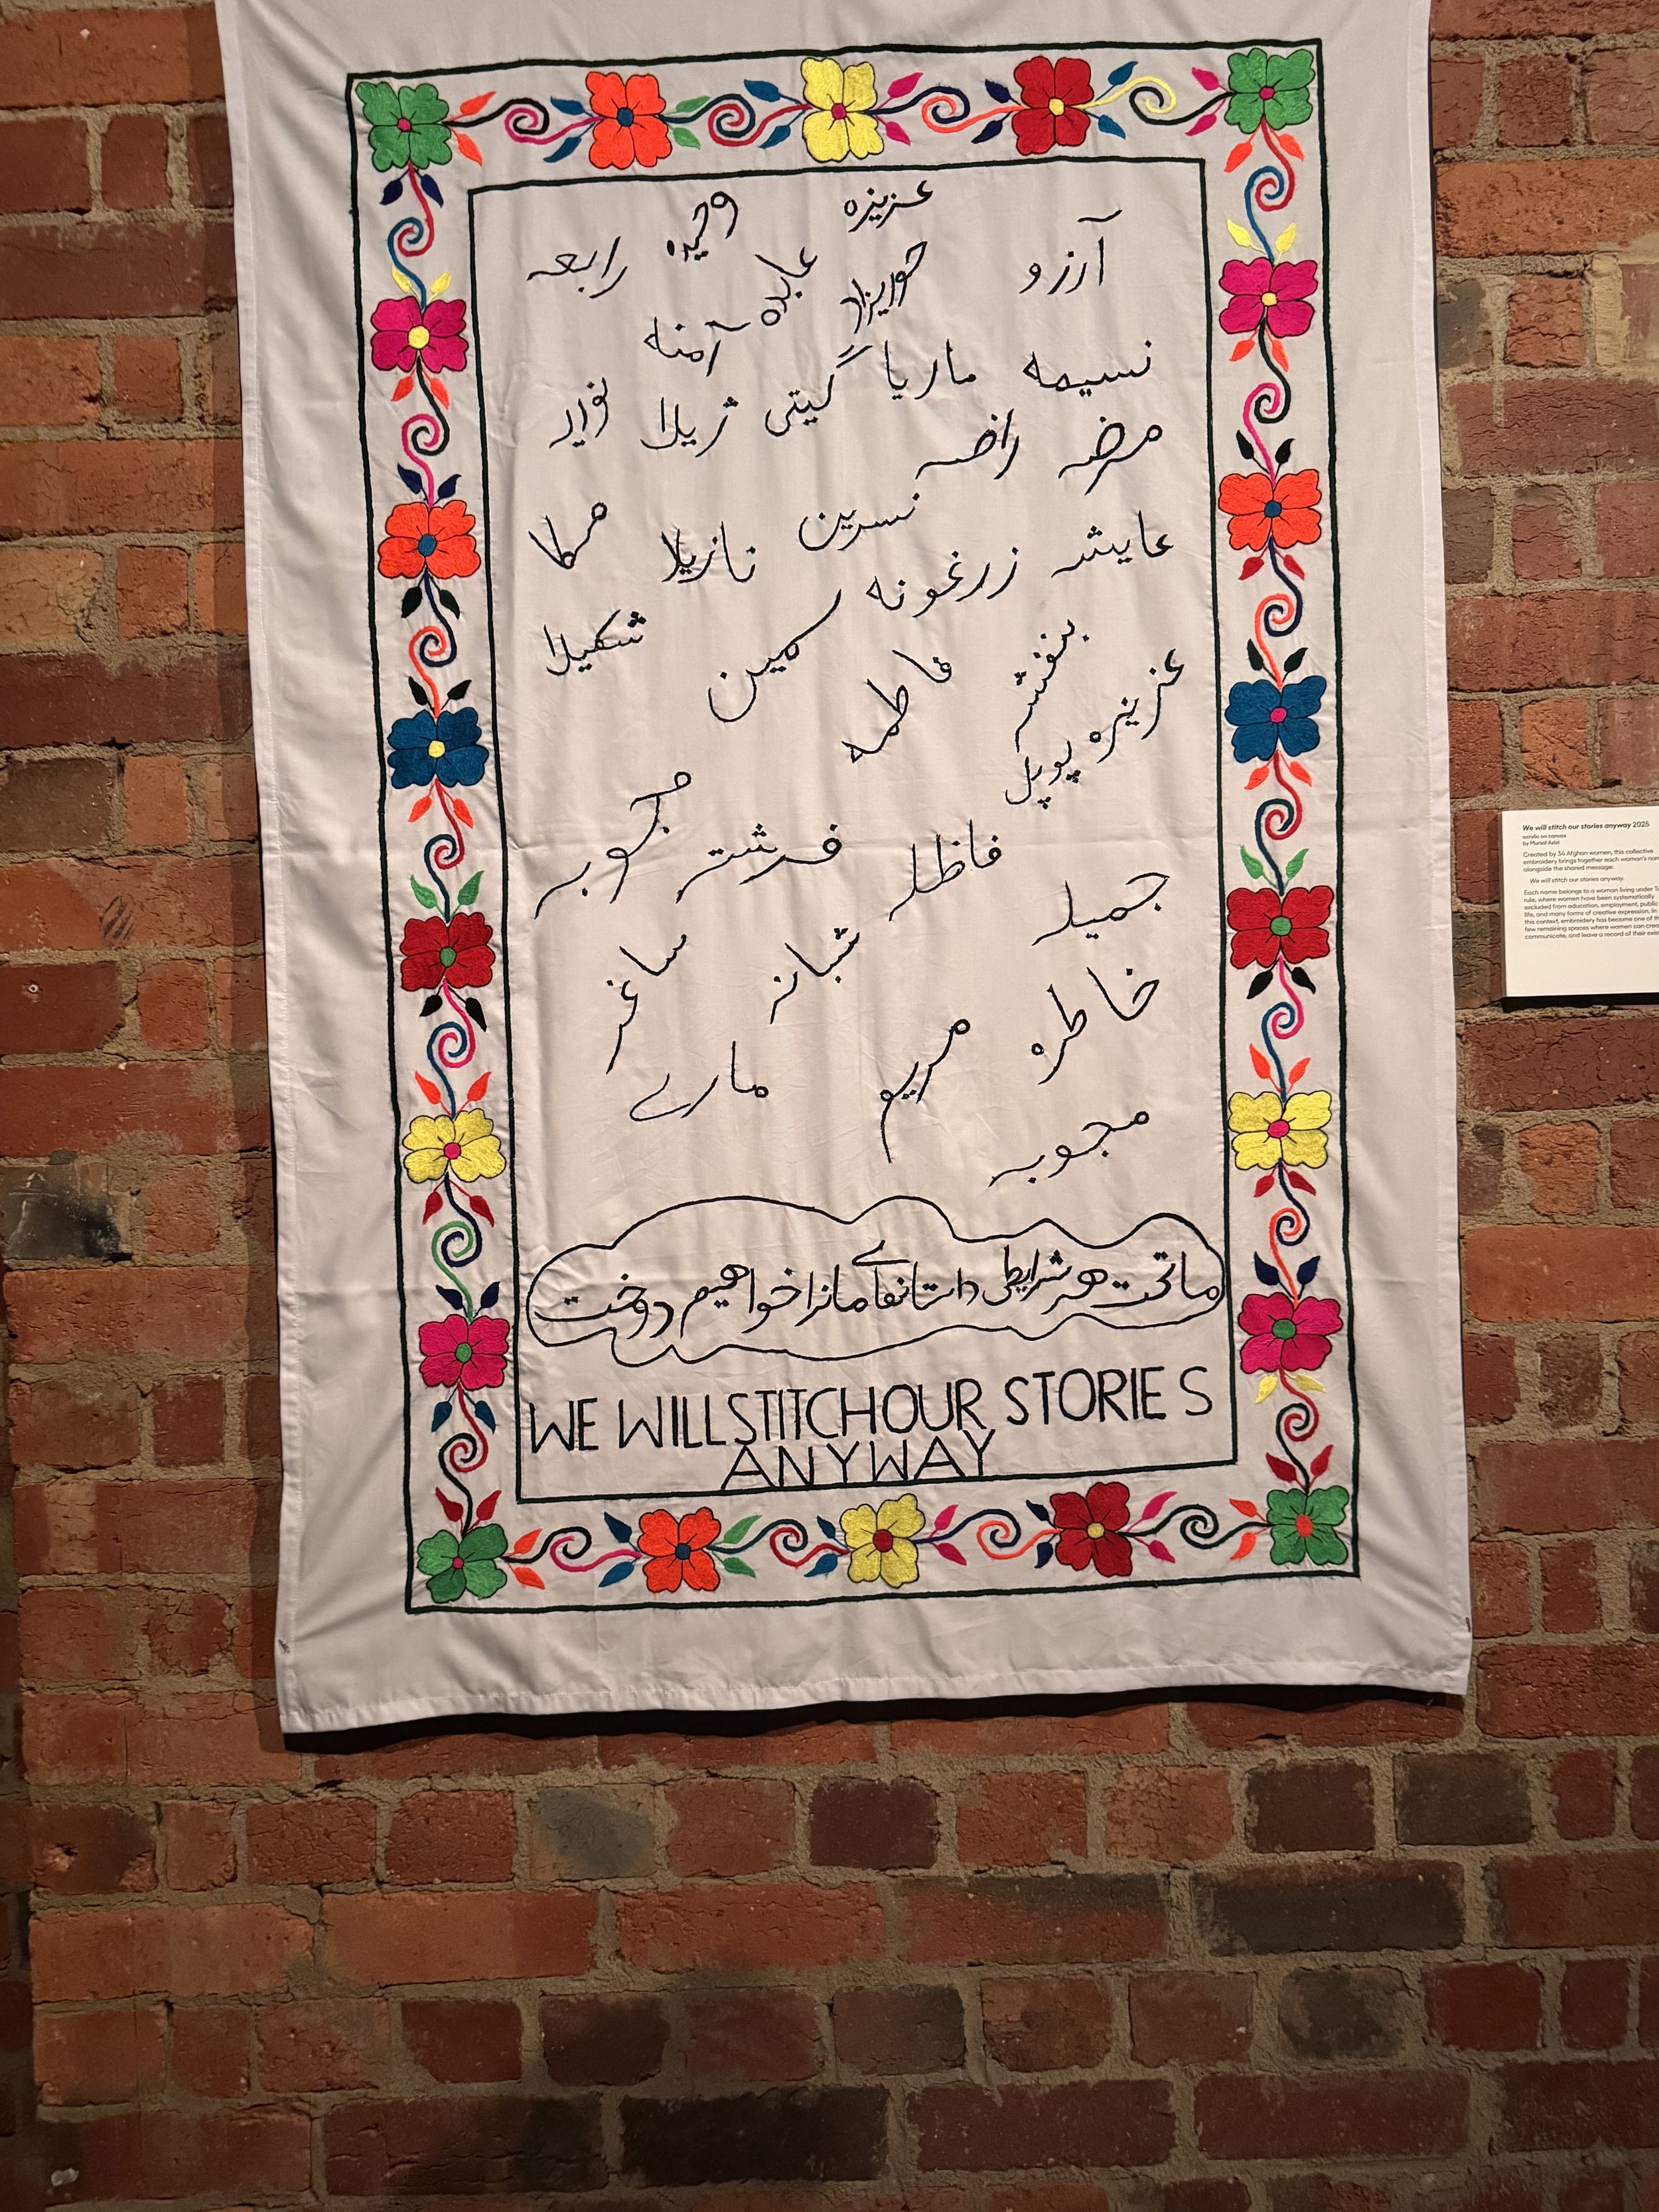 عزیزه
وحیده
آرزو
حوریزاد
عابده
رابعه
آمنه
نسیمه
ماریا
گیتی
ژیلا
مرضه
راضه
نسرین
نازیلا
عایشه
زرغونه
سمین
شکیلا
بنفشه
فاطمه
عزیزه پوپل
فرشته
فاظله
جمیله
شبانه
ساغر
خاطره
مریم
مارے
مجوبه
ما تحت هر شرایطی داستانهاے مانرا خواهیم دوخت
WE WILL STITCH OUR STORIES
ANYWAY
We will stitch our stories anyway 2025
acrylic on canvas
by Mursal Azizi
Created by 34 Afghan women, this collective
embroidery brings together each woman's
alongside the shared message:
We will stitch our stories anyway.
Each name belongs to a woman living under
rule, where women have been systematically
excluded from education, employment, public
life, and many forms of creative expression. In
this context, embroidery has become one of
few remaining spaces where women can
communicate, and leave a record of their